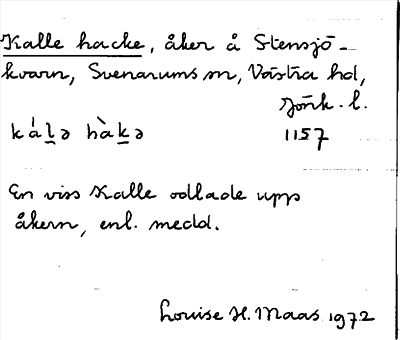 Kalle hacke, åker å Stensjö-
kvarn, Svenarums sn, Västra hd,
Jönk. l.
káḻə hàḵə 1157
En viss Kalle odlade upp
åkern, enl. medd.
Louise H. Maas 1972